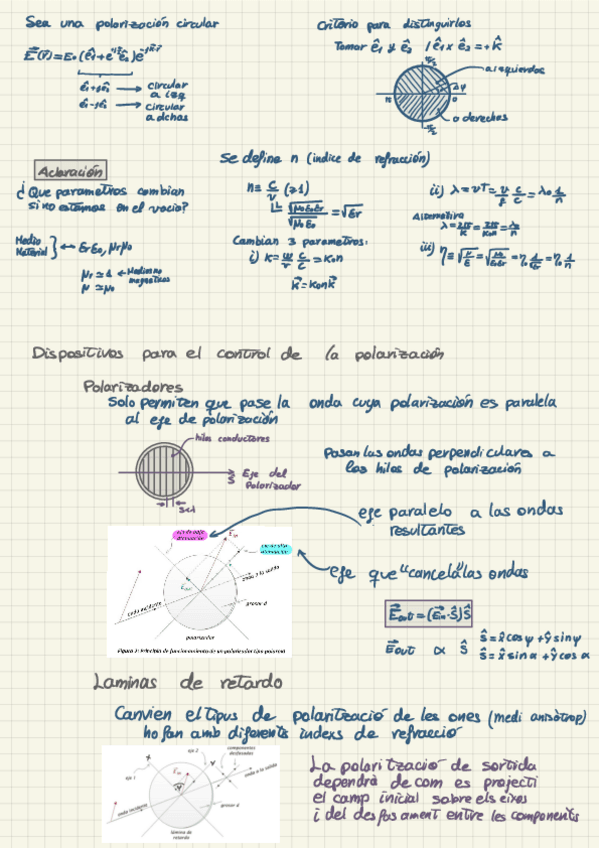 Sea una polarización circular
E⃗(r⃗)=E₀(ê₁+e^{±jπ/2}ê₂)e^{-jk⃗·r⃗}
ê₁+jê₂ → circular a izq
ê₁-jê₂ → circular a dchas
Criterio para distinguirlos
Tomar ê₁ y ê₂ / ê₁ x ê₂ = +k̂
π/2
a izquierdas
Δφ
π
0
a derechas
-π/2
Aclaración
¿Que parametros cambian
si no estamos en el vacio?
Medio
Material
← ErEo, μrμo
μr ≃ 1 ← Medios no magneticos
μ ≃ μo
Se define n (indice de refracción)
n = c/v (≥1)
√μoEoEr / √μoEo = √Er
Cambian 3 parametros:
i) k = w/v c/c = kon
k⃗ = kon k̂
ii) λ = vT = v/f c/c = λo 1/n
Alternativa
λ = 2π/k = 2π/kon = λo/n
iii) η = √μ/E = √μo/EoEr = ηo 1/√Er = ηo 1/n
Dispositivos para el control de la polarización
Polarizadores
Solo permiten que pase la onda cuya polarización es paralela
al eje de polarización
hilos conductores
ŝ Eje del
Polarizador
s<λ
Pasan las ondas perpendiculares a
los hilos de polarización
eje paralelo a las ondas
resultantes
eje de baja
atenuación
eje de alta
atenuación
onda a la salida
onda incidente
grosor d
polarizador
eje que "cancela" las ondas
E⃗out = (E⃗in·ŝ)ŝ
E⃗out ∝ ŝ
ŝ = x̂cosψ + ŷsinψ
ŝ = x̂sinα + ŷcosα
Laminas de retardo
Canvien el tipus de polarització de les ones (medi anisòtrop)
ho fan amb diferents indexs de refracció
eje 1
eje 2
componentes
desfasadas
onda a la salida
onda incidente
grosor d
lámina de
retardo
La polarització de sortida
dependrà de com es projecti
el camp inicial sobre els eixos
i del desfasament entre les components